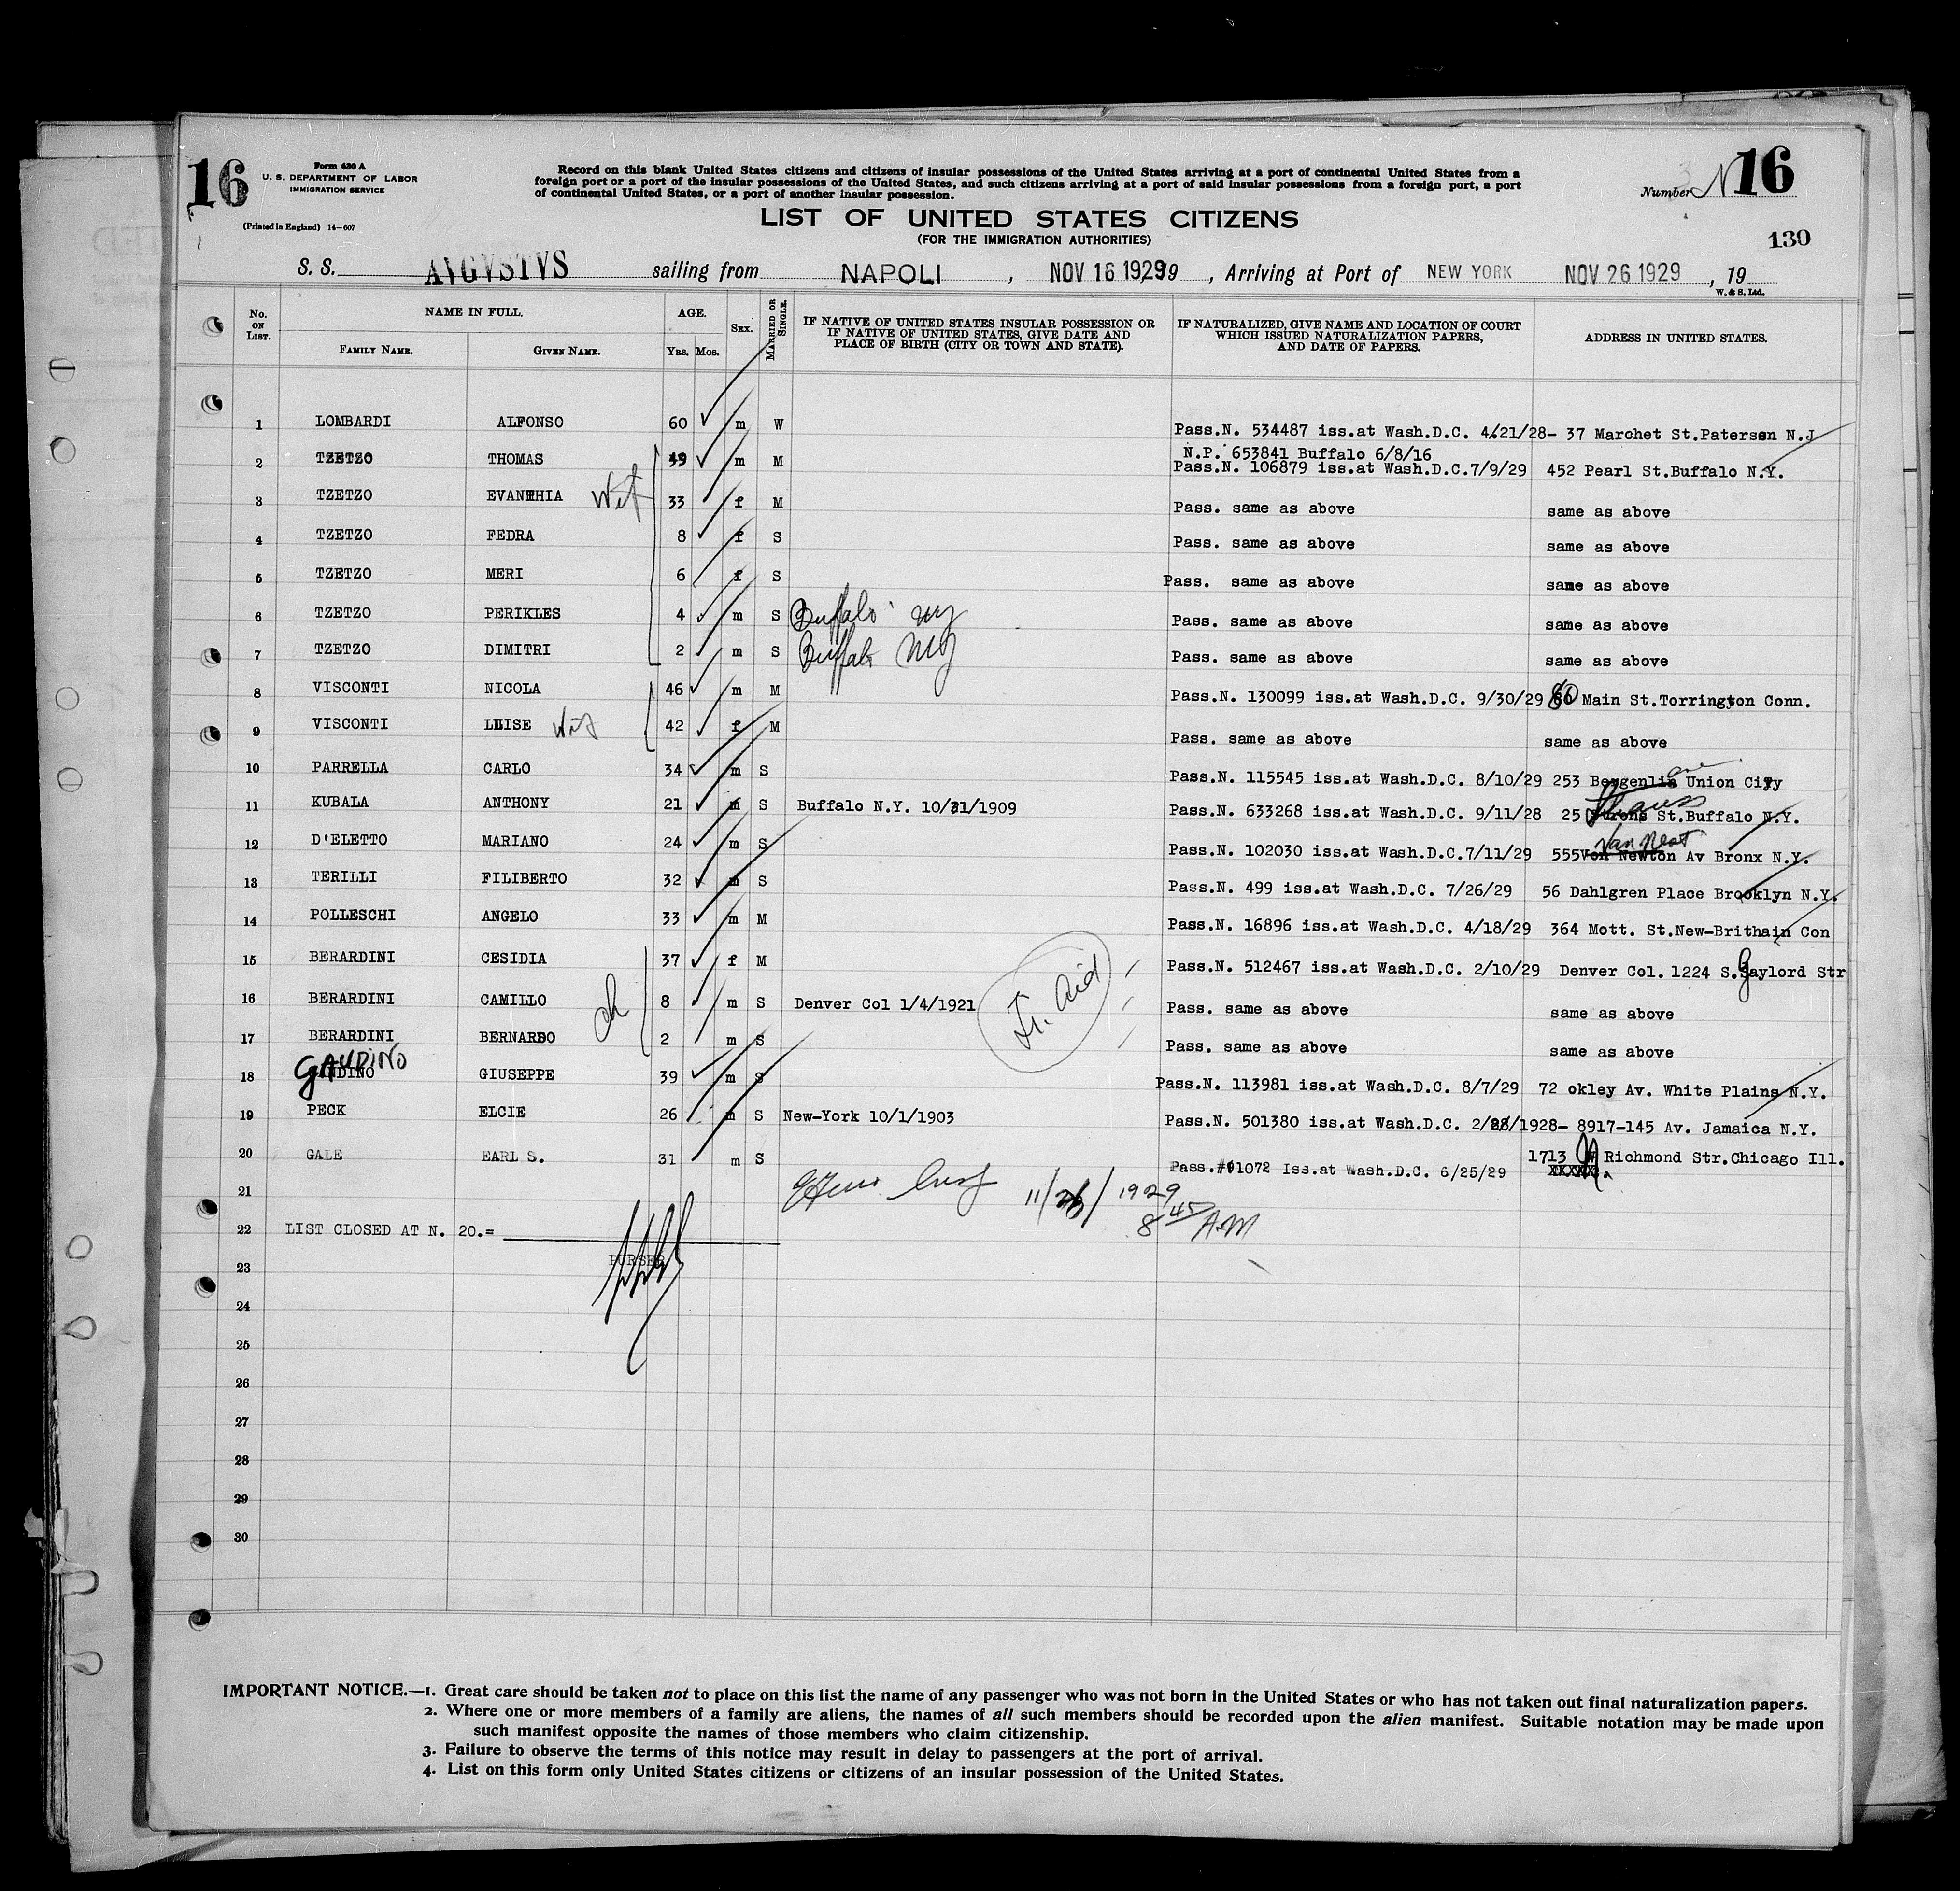 16
Form 630 A
U. S. DEPARTMENT OF LABOR
IMMIGRATION SERVICE
(Printed in England) 14-607
Record on this blank United States citizens and citizens of insular possessions of the United States arriving at a port of continental United States from a
foreign port or a port of the insular possessions of the United States, and such citizens arriving at a port of said insular possessions from a foreign port, a port
of continental United States, or a port of another insular possession.
Number N 16
LIST OF UNITED STATES CITIZENS
(FOR THE IMMIGRATION AUTHORITIES)
130
S. S. AVGVSTVS sailing from NAPOLI, NOV 16 1929 19, Arriving at Port of NEW YORK NOV 26 1929, 19
W. & S. Ltd.
No. ON LIST. NAME IN FULL. AGE. SEX. MARRIED OR SINGLE. IF NATIVE OF UNITED STATES INSULAR POSSESSION OR IF NATIVE OF UNITED STATES, GIVE DATE AND PLACE OF BIRTH (CITY OR TOWN AND STATE). IF NATURALIZED, GIVE NAME AND LOCATION OF COURT WHICH ISSUED NATURALIZATION PAPERS, AND DATE OF PAPERS. ADDRESS IN UNITED STATES.
FAMILY NAME. GIVEN NAME. YRS. MOS.
1 LOMBARDI ALFONSO 60 m W Pass.N. 534487 iss.at Wash.D.C. 4/21/28- 37 Marchet St.Paterson N.J
N.P. 653841 Buffalo 6/8/16
2 TZETZO THOMAS 49 m M Pass.N. 106879 iss.at Wash.D.C.7/9/29 452 Pearl St.Buffalo N.Y.
3 TZETZO EVANTHIA Wif 33 f M Pass. same as above same as above
4 TZETZO FEDRA 8 f S Pass. same as above same as above
5 TZETZO MERI 6 f S Pass. same as above same as above
6 TZETZO PERIKLES 4 m S Buffalo NY Pass. same as above same as above
7 TZETZO DIMITRI 2 m S Buffalo NY Pass. same as above same as above
8 VISCONTI NICOLA 46 m M Pass.N. 130099 iss.at Wash.D.C. 9/30/29 80 Main St.Torrington Conn.
9 VISCONTI LUISE Wif 42 f M Pass. same as above same as above
10 PARRELLA CARLO 34 m S Pass.N. 115545 iss.at Wash.D.C. 8/10/29 253 Bergenlin ave Union City
11 KUBALA ANTHONY 21 m S Buffalo N.Y. 10/31/1909 Pass.N. 633268 iss.at Wash.D.C. 9/11/28 25 Strauss St.Buffalo N.Y.
12 D'ELETTO MARIANO 24 m S Pass.N. 102030 iss.at Wash.D.C.7/11/29 555 Van Nest Von Newton Av Bronx N.Y.
13 TERILLI FILIBERTO 32 m S Pass.N. 499 iss.at Wash.D.C. 7/26/29 56 Dahlgren Place Brooklyn N.Y.
14 POLLESCHI ANGELO 33 m M Pass.N. 16896 iss.at Wash.D.C. 4/18/29 364 Mott. St.New-Brithain Con
15 BERARDINI CESIDIA 37 f M Pass.N. 512467 iss.at Wash.D.C. 2/10/29 Denver Col. 1224 S.Gaylord Str
16 BERARDINI CAMILLO ch 8 m S Denver Col 1/4/1921 Tr. Aid Pass. same as above same as above
17 BERARDINI BERNARDO 2 m S Pass. same as above same as above
18 GAUDINO GIUSEPPE 39 m S Pass.N. 113981 iss.at Wash.D.C. 8/7/29 72 okley Av. White Plains N.Y.
19 PECK ELCIE 26 m S New-York 10/1/1903 Pass.N. 501380 iss.at Wash.D.C. 2/28/1928- 8917-145 Av. Jamaica N.Y.
20 GALE EARL S. 31 m S Pass.#91072 Iss.at Wash.D.C. 6/25/29 1713 N Richmond Str.Chicago Ill.
21 11/26/1929
8 45 A.M
22 LIST CLOSED AT N. 20.=
PURSER
23
24
25
26
27
28
29
30
IMPORTANT NOTICE.—1. Great care should be taken not to place on this list the name of any passenger who was not born in the United States or who has not taken out final naturalization papers.
2. Where one or more members of a family are aliens, the names of all such members should be recorded upon the alien manifest. Suitable notation may be made upon
such manifest opposite the names of those members who claim citizenship.
3. Failure to observe the terms of this notice may result in delay to passengers at the port of arrival.
4. List on this form only United States citizens or citizens of an insular possession of the United States.